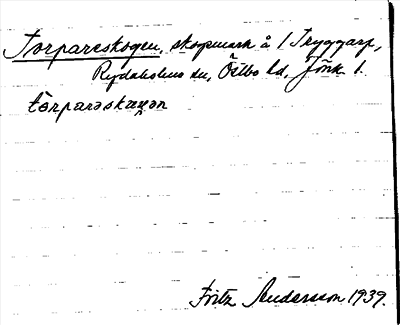 Torpareskogen, skogmark å 1 Tryggarp,
Rydaholms sn, Östbo hd, Jönk. l.
tòrparəskæɯən
Fritz Andersson 1939.